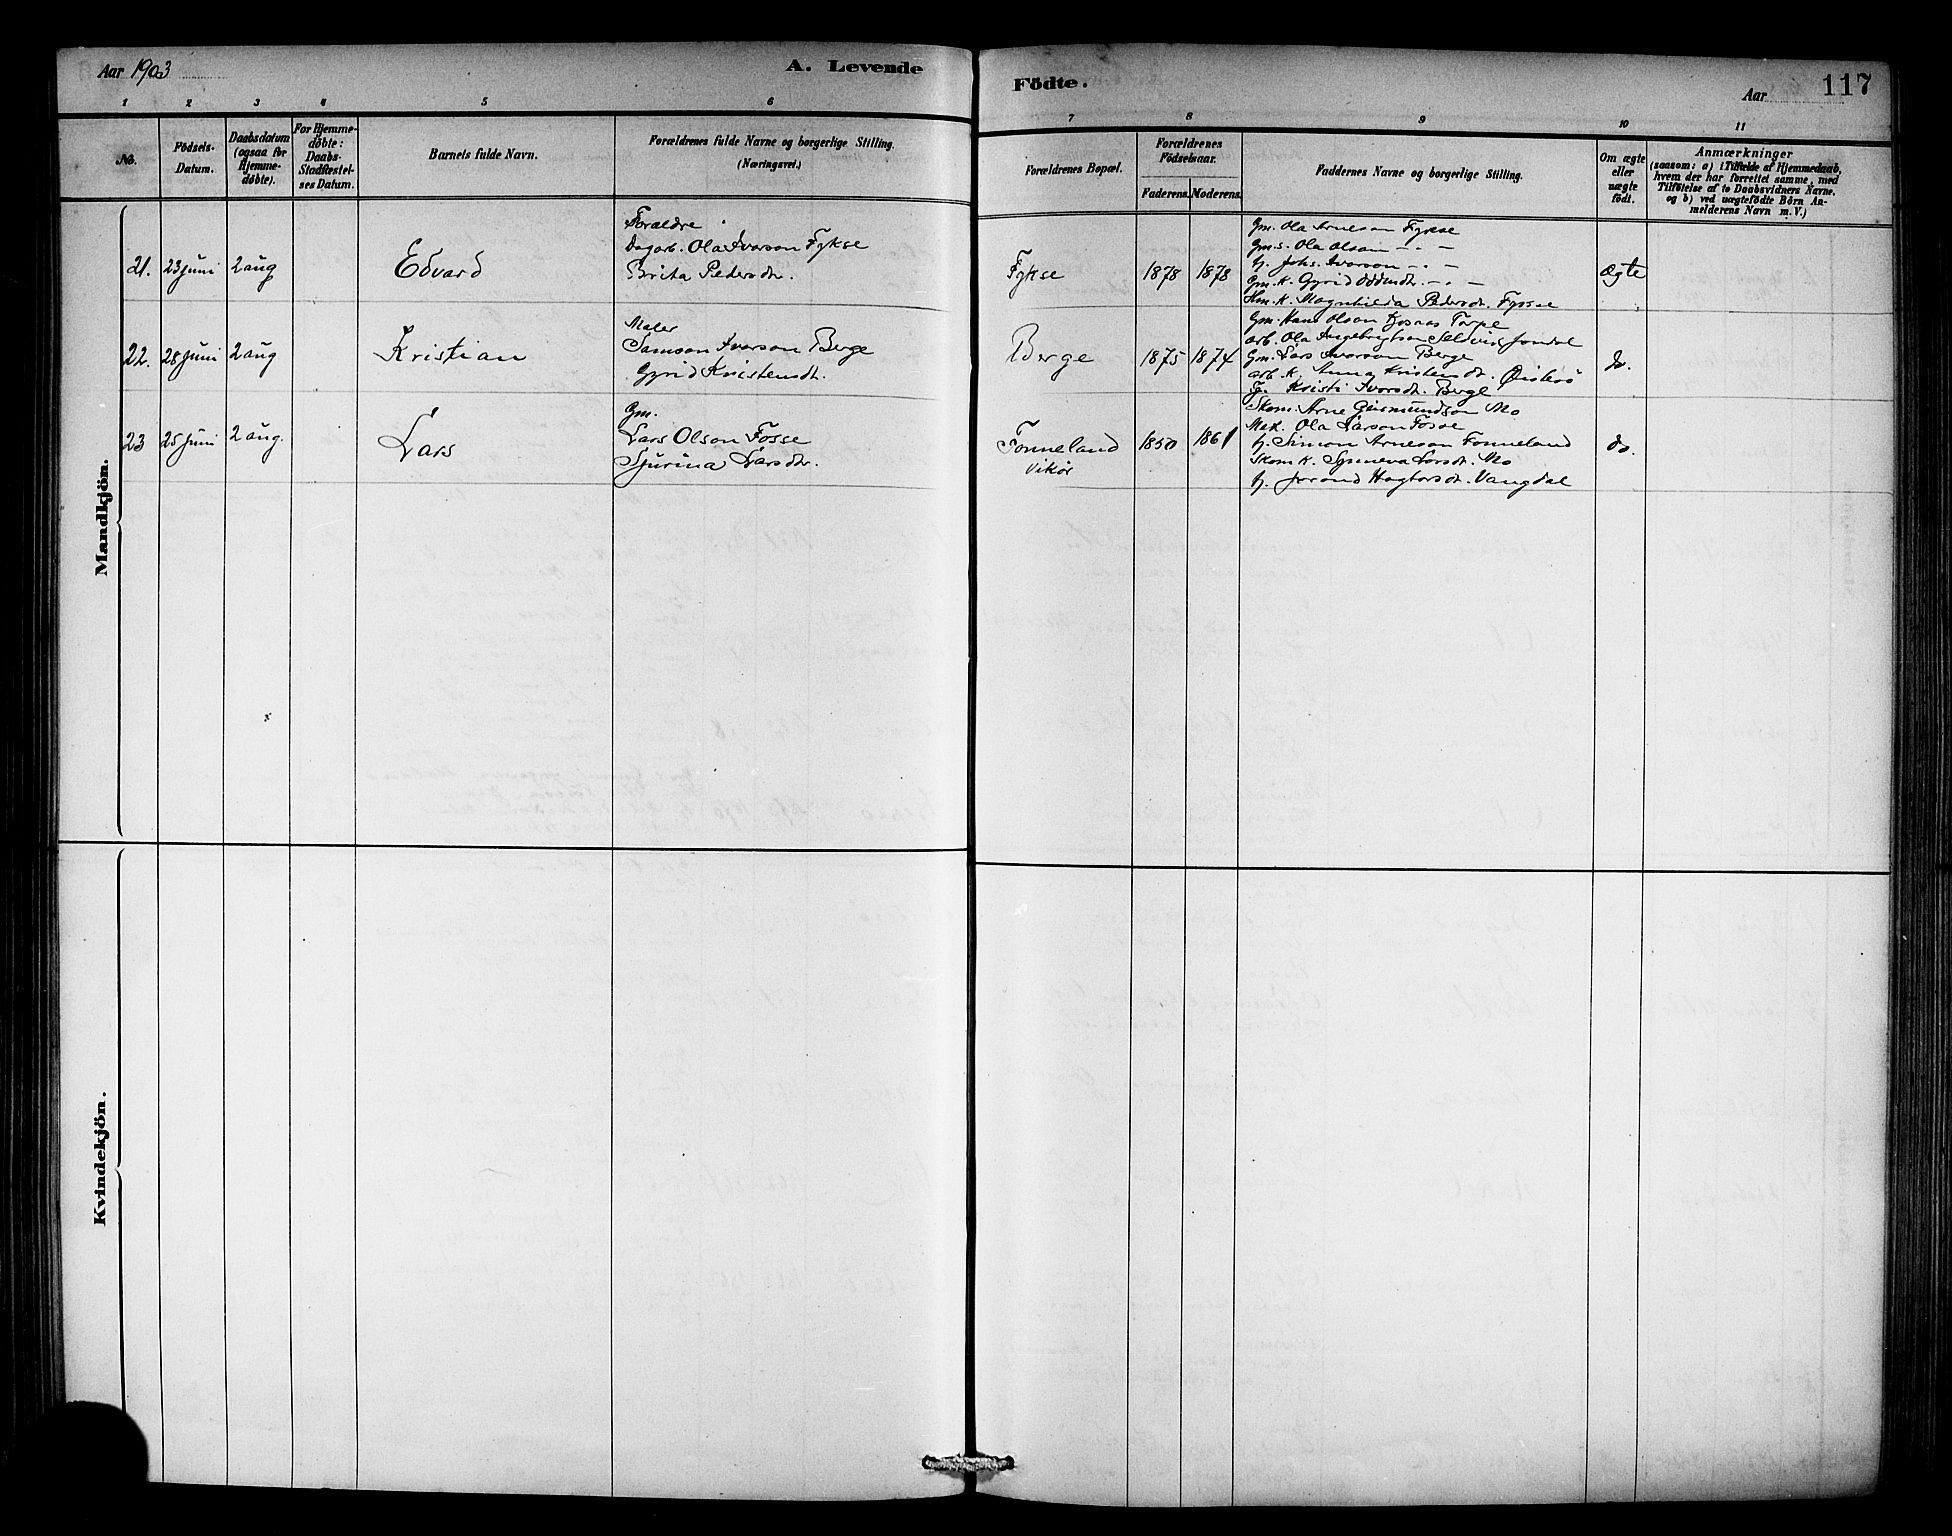 Aar 1903
A. Levende
Födte.
Aar
117
1 2 3 4 5 6 7 8 9 10 11
No.
Födsels-
Datum.
Daabsdatum
(ogsaa for
Hjemme-
döbte).
For Hjemme-
döbte:
Daabs-
Stadfæstel-
ses Datum.
Barnets fulde Navn.
Forældrenes fulde Navne og borgerlige Stilling.
(Næringsvei.)
Forældrenes Bopæl.
Forældrenes
Födselsaar.
Faderens. Moderens.
Faddernes Navne og borgerlige Stilling.
Om ægte
eller
uægte
födt.
Anmærkninger
(saasom: a) i Tilfælde af Hjemmedaab,
hvem der har forrettet samme, med
Tilföielse af to Daabsvidners Navne,
og b) ved uægtefödte Börn An-
melderens Navn m. V.)
Mandkjön.
21. 23 juni 2 aug Edvard
Foræeldre
Dagarb. Ola Ivarson Fykse
Brita Pedersdt.
Fykse 1878 1878
Gm. Ola Arneson Fykse
Gm.s. Ola Olson — . —
Joh.s. Ivarson — . —
Gm. K. Gyrid Oddsndt. — . —
Hm. K. Magnhilda Pedersdt. Fosse
Ægte
22. 28 juni 2 aug Kristian
Maler
Samson Ivarson Berge
Gyrid Kristensdt.
Berge 1875 1874
Gm. Hans Olson Kosnas Torpe
arb. Ola Ingebrigtson Seldvig Jondal
Gm. Lars Ivarson Berge
arb. K. Anna Kristensdt. Øistesö
Kristi Ivarsdt. Berge
do.
23 25 juni 2 aug. Lars
Gm.
Lars Olson Fosse
Sjurina Larsdtr.
Tonneland
Vikör
1850 1861
Skom. Arne Geirmundson Mo
Mek. Ola Larson Fosse
Simon Arneson Tonneland
Skom K. Synneva Larsdt. Mo
Jorand Hagtorsdt. Vangdal
do.
Kvindekjön.